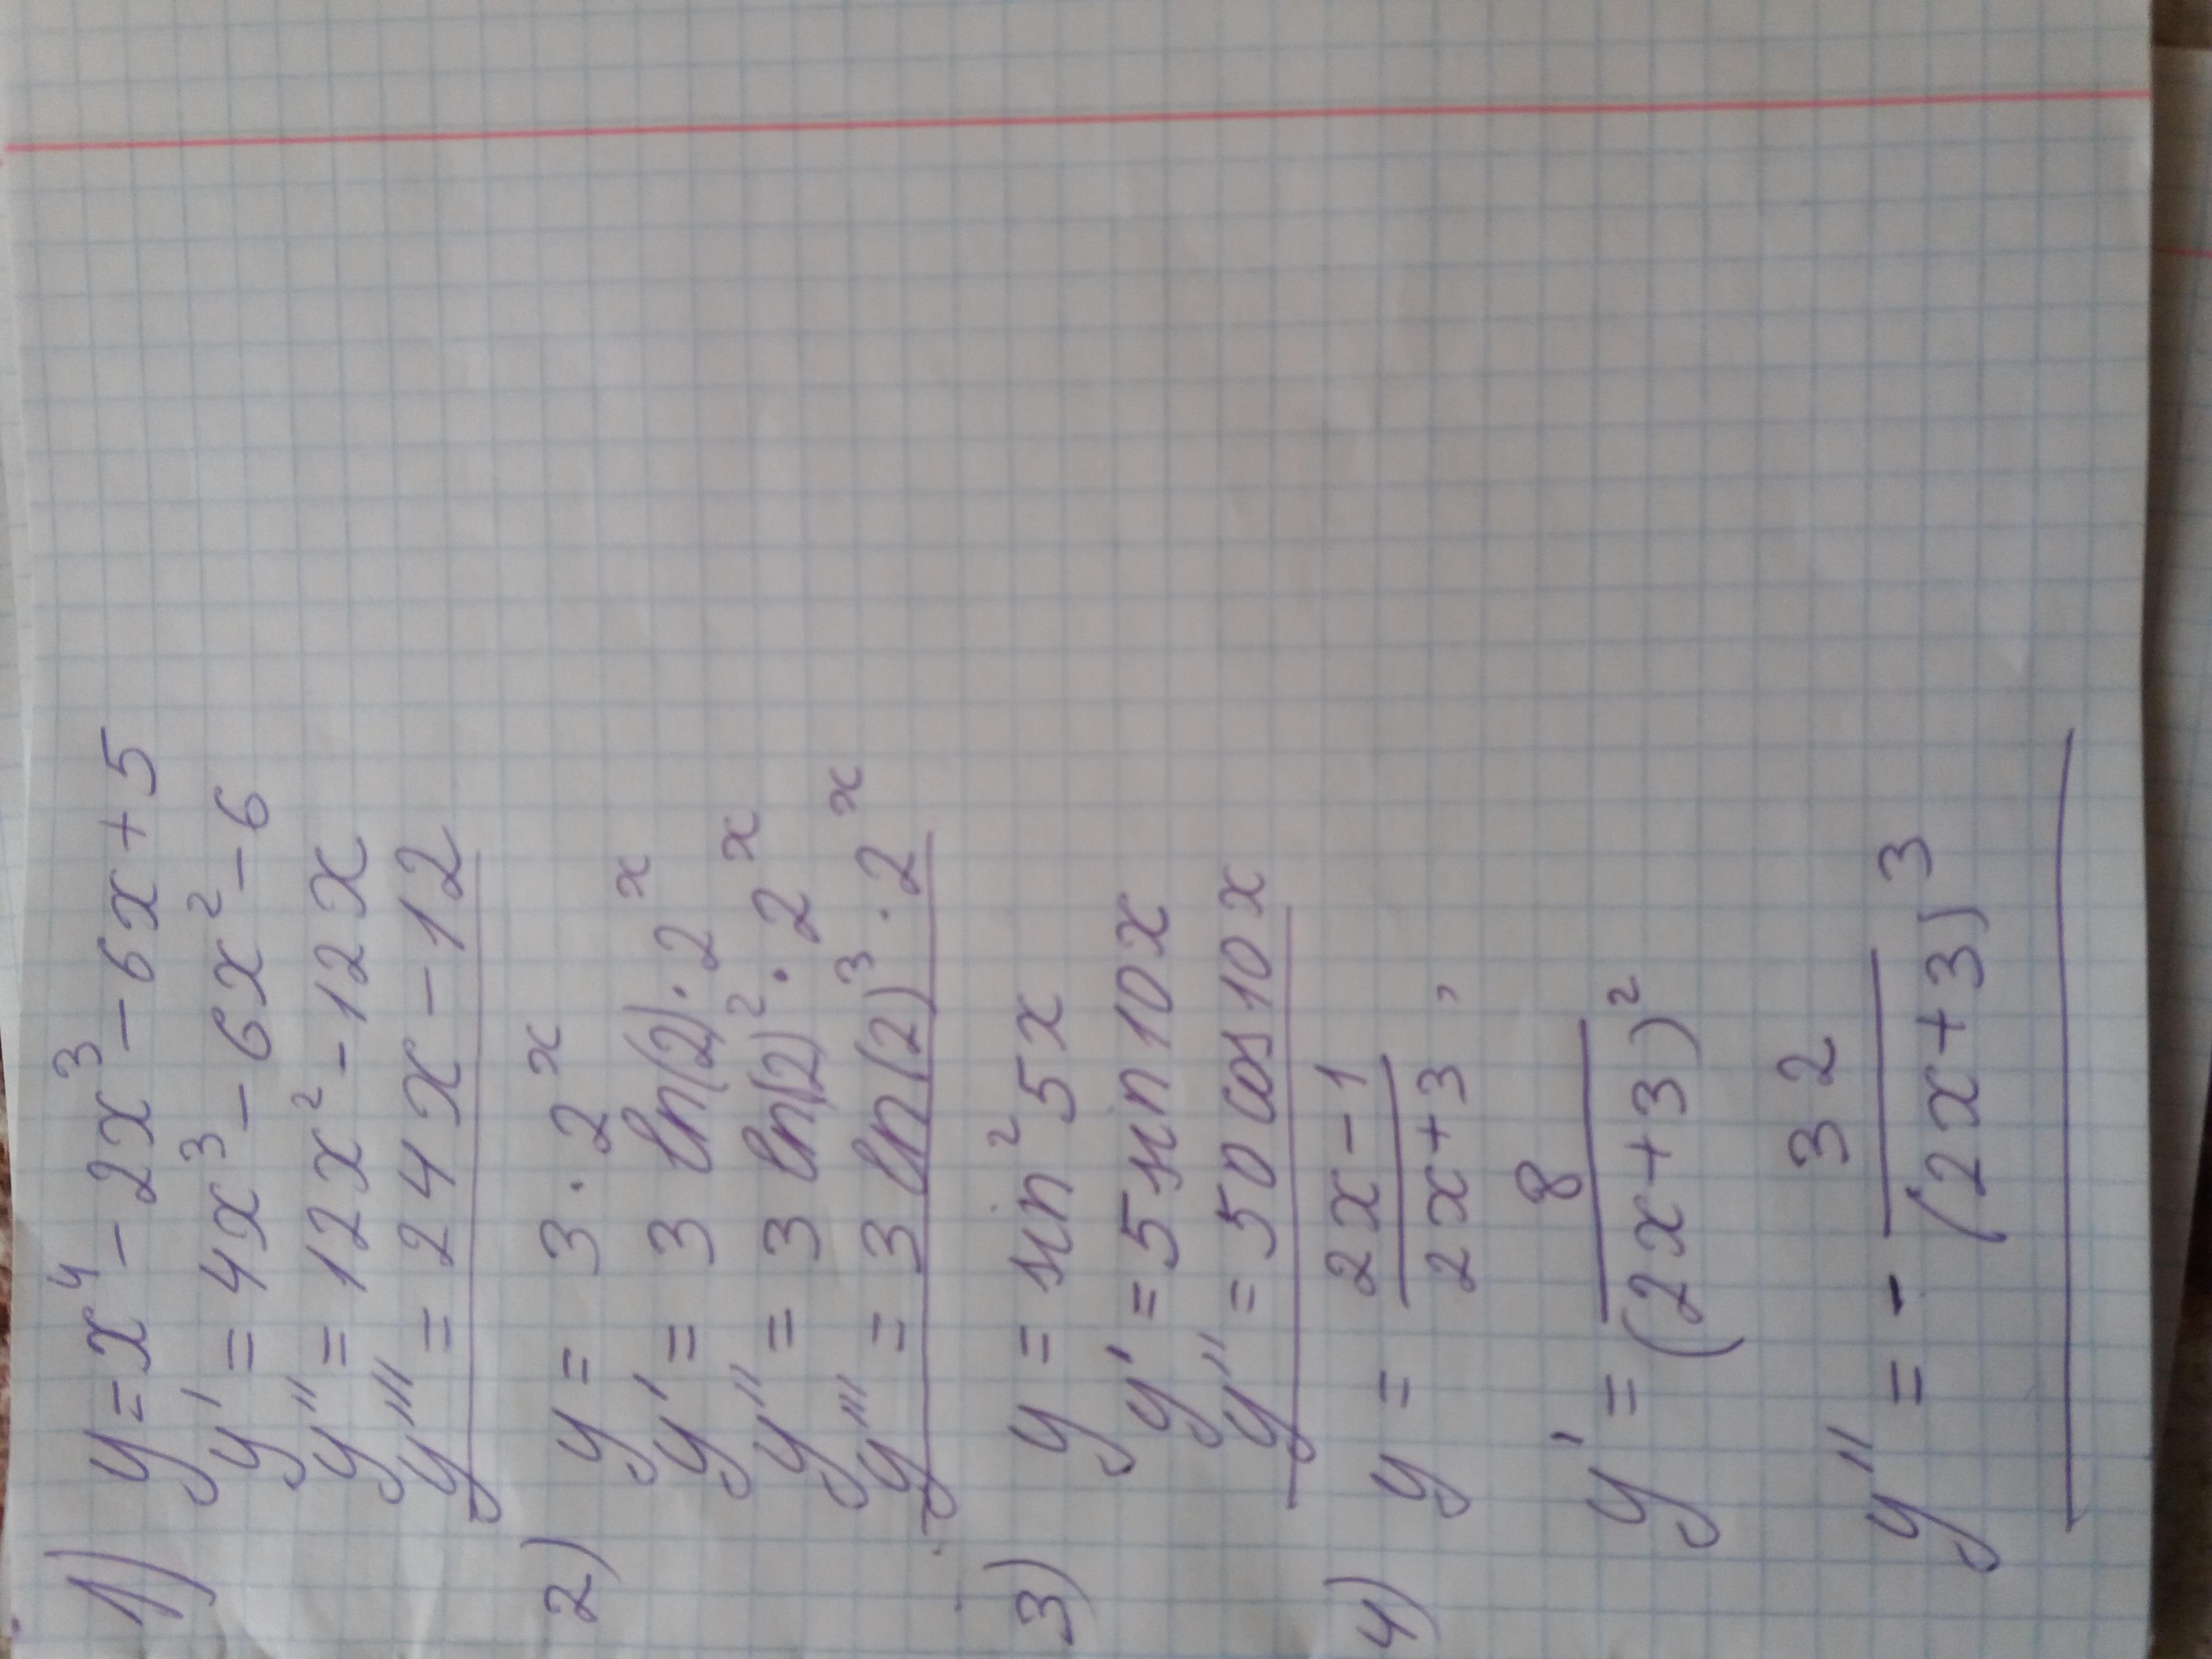 1) y = x⁴ - 2x³ - 6x + 5
y' = 4x³ - 6x² - 6
y'' = 12x² - 12x
y''' = 24x - 12
2) y = 3 · 2ˣ
y' = 3 ln(2) · 2ˣ
y'' = 3 ln(2)² · 2ˣ
y''' = 3 ln(2)³ · 2ˣ
3) y = sin² 5x
y' = 5 sin 10x
y'' = 50 cos 10x
4) y = (2x - 1)/(2x + 3),
y' = 8/(2x + 3)²
y'' = - 32/(2x + 3)³